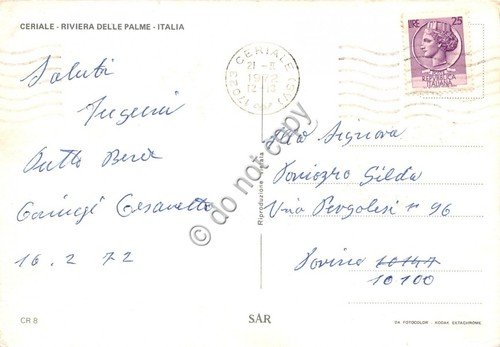 CERIALE - RIVIERA DELLE PALME - ITALIA
LIRE 25
REPUBBLICA
ITALIANA
17023 CERIALE (SV)
21-II
1972
12-13
Saluti
Tutto Bene
16.2 72
Alla Signora
Gilda
Via Pergolesi n 96
Torino 10147
10100
Riproduzione vietata
do not copy
CR 8
SAR
DA FOTOCOLOR - KODAK EKTACHROME